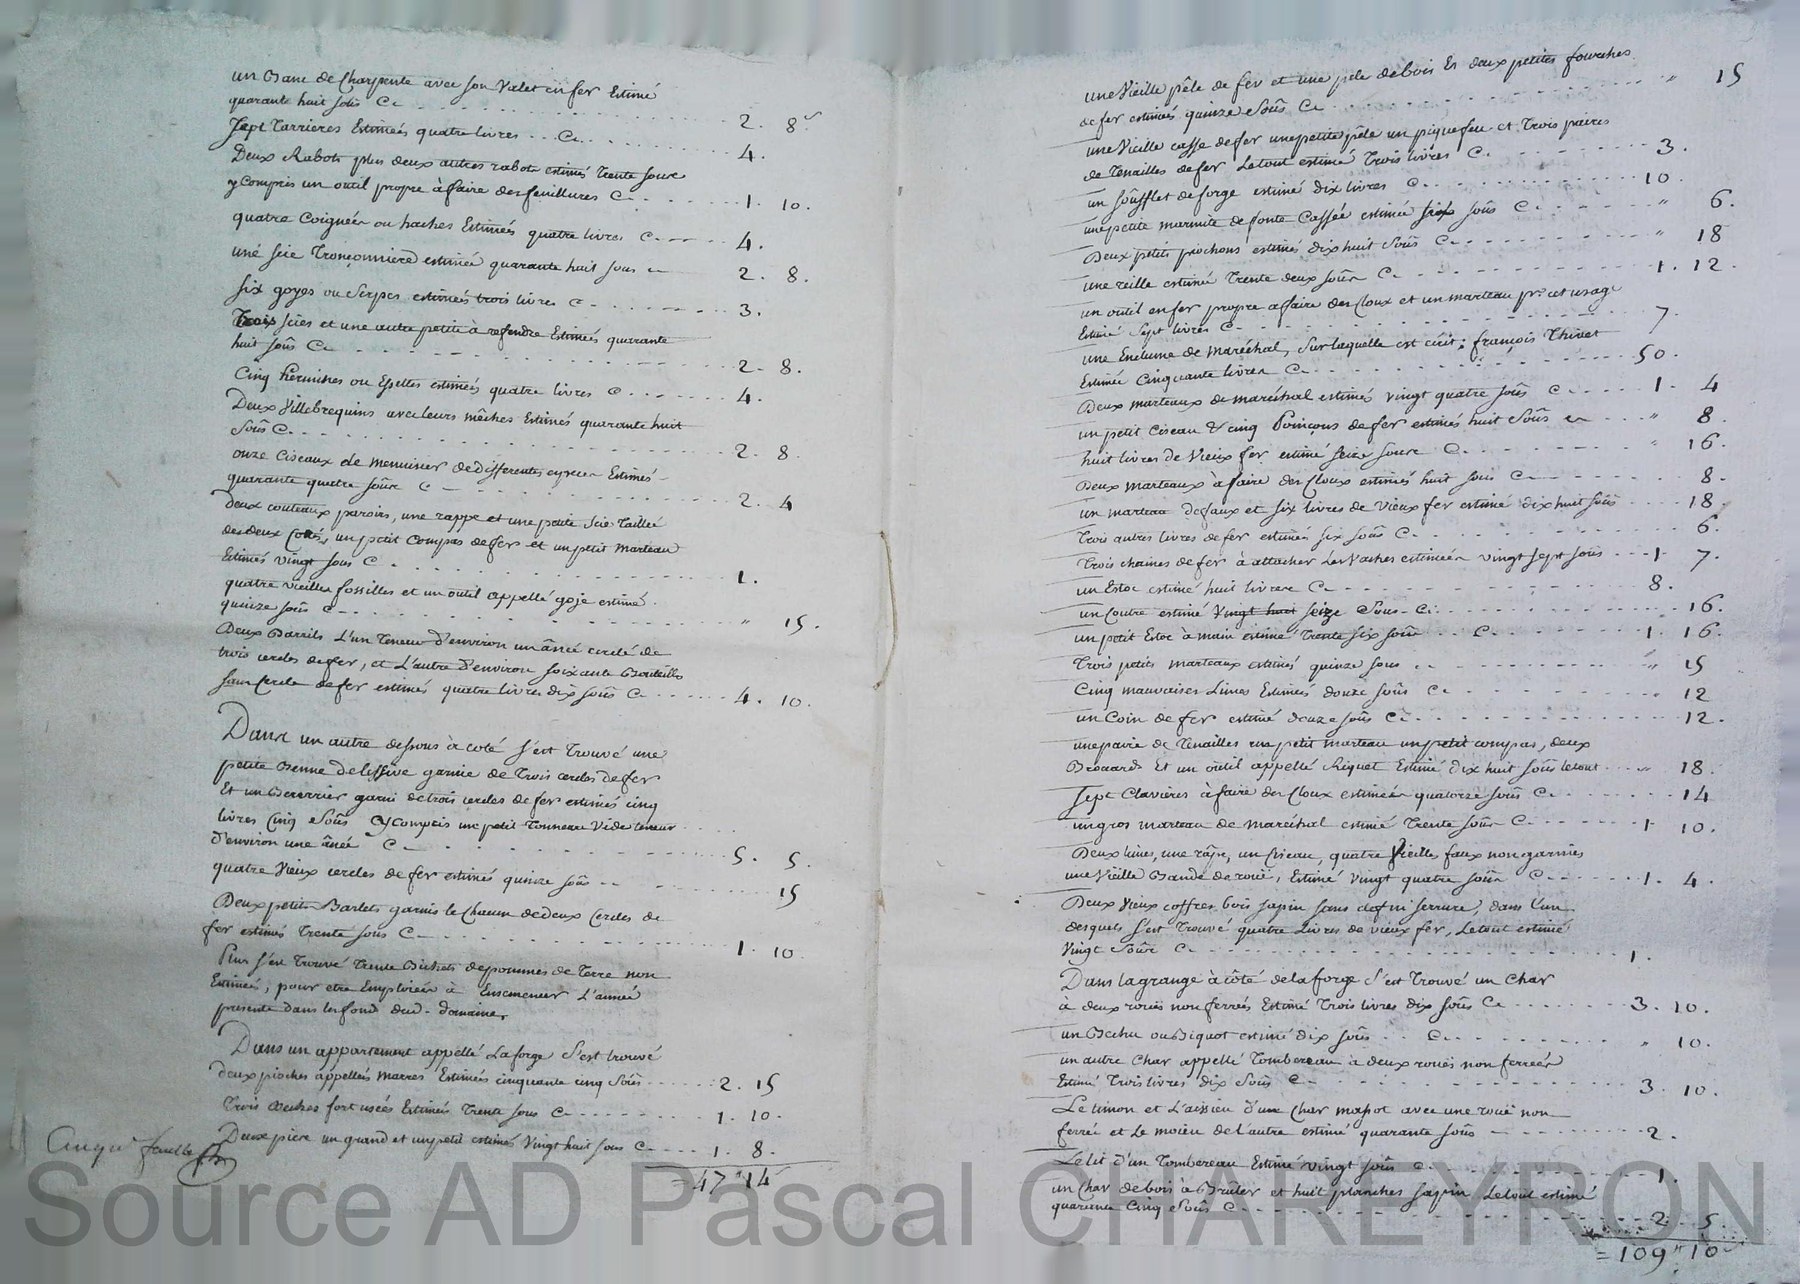 un Banc de Charpente avec son Valet en fer Estimé
quarante huit sous C. 2. 8
Sept Tarrieres Estimées quatre livres C. 4.
Deux Rabots plus deux autres rabots estimés Trente sous
y compris un outil propre à faire des feuillures C 1. 10.
quatre Coignées ou haches Estimées quatre livres C 4.
une scie Tronçonniere estimée quarante huit sous 2. 8.
Six goyes ou Serpes estimées trois livres C 3.
Trois scies et une autre petite à refendre Estimées quarante
huit sous C 2. 8.
Cinq hermines ou estimées quatre livres C 4.
Deux Villebrequins avec leurs mêches Estimés quarante huit
Sous C. 2. 8.
onze Ciseaux de menuisier de differentes Estimés
quarante quatre sous C 2. 4
deux couteaux paroirs, une rappe et une petite scie Taillée
des deux Cotés, un petit Compas de fer et un petit marteau
Estimés vingt sous C 1.
quatre vieilles fossilles et un outil appellé goje estimé
quinze sous C " 15.
Deux Barrils L'un Teneur d'environ un ânée cerclé de
trois cercles de fer, et L'autre d'environ soixante Bouteilles
sans Cercle de fer estimés quatre livres dix sous C 4. 10.
Dans un autre dessous à coté s'est Trouvé une
petite Benne de lessive garnie de Trois cercles de fer
Et un garni de trois cercles de fer estimés cinq
livres Cinq Sous Cy compris un petit Tonneau Vide teneur
d'environ une ânée C 5. 5.
quatre Vieux cercles de fer estimés quinze sous 15
Deux petits Barlets garnis le Chacun de deux Cercles de
fer estimés Trente sous C 1. 10
Plus s'est Trouvé Trente Bichets de pommes de Terre non
Estimées, pour etre Employées à Ensemencer L'année
presente dans les fond dud. domaine,
Dans un appartement appellé La forge s'est trouvé
deux pioches appellées marres Estimées cinquante cinq sous 2. 15
Trois Beches fort usées Estimées Trente sous C 1. 10.
Deux un grand et un petit estimés Vingt huit sous C 1. 8.
Cinqe feuille
= 47" 14
une Vieille pêle de fer et une pele de bois Et deux petites fourches
de fer estimés quinze Sous C " 15
une Vieille casse de fer une petite pêle un pique feu et Trois paires
de Tenailles de fer Le tout estimé Trois livres C. 3.
un soufflet de forge estimé dix livres C. 10.
une petite marmite de fonte Cassée estimée six sous C " 6.
Deux petits piochons estimés dix huit Sous C " 18
une reille estimée Trente deux sous C 1. 12.
un outil en fer propre a faire des Cloux et un marteau pr cet usage
Estimé Sept livres C 7.
une Enclume de maréchal, sur laquelle est ecrit: françois Thivet
Estimée Cinquante livres C 50.
Deux marteaux de maréchal estimés vingt quatre sous C 1. 4
un petit Ciseau & cinq Poinçons de fer estimés huit Sous " 8.
huit livres de Vieux fer estimé seize sous C. " 16
Deux marteaux à faire des Cloux estimés huit sous C 8.
un marteau de faux et six livres de vieux fer estimé dix huit sous 18
Trois autres livres de fer estimés six sous C. 6.
Trois chaines de fer à attacher Les vaches estimées vingt sept sous 1. 7.
un Estoc estimé huit livres C. 8.
un Coutre estimé Vingt huit seize Sous C. 16.
un petit Estoc à main estimé Trente six sous C. 1. 16.
Trois petits marteaux estimés quinze sous " 15
Cinq mauvaises Limes Estimées douze sous C. " 12
un Coin de fer estimé douze sous C. 12.
une paire de Tenailles un petit marteau un petit compas, deux
Et un outil appellé Riquet Estimé dix huit sous le tout " 18.
sept Clavières à faire des Cloux estimées quatorze sous C. " 14
un gros marteau de maréchal estimé Trente sous C 1. 10.
Deux Limes, une râpe, un Ciseau, quatre Vieilles faux non garnies
une Vieille Bande de roüe, Estimé vingt quatre sous C 1. 4.
Deux Vieux coffres bois sapin sans clef ni serrure, dans l'un
desquels s'est Trouvé quatre Livres de vieux fer, Le tout estimé
Vingt Sous C 1.
Dans la grange à côté de la forge s'est Trouvé un Char
à deux roües non ferrées Estimé Trois livres dix sous C 3. 10.
un Bechu ou Biguot estimé dix sous C. " 10.
un autre Char appellé Tombereau à deux roües non ferrées
Estimé Trois livres dix Sous C 3. 10.
Le timon et L'aissieu d'un Char mapot avec une roüe non
ferrée et Le moieu de l'autre estimé quarante sous 2.
Le lit d'un Tombereau Estimé vingt sous C 1.
un Char de bois à Brûler et huit planches sapin Le tout estimé
quarante Cinq Sous C 2. 5.
= 109" 10
Source AD Pascal CHAREYRON